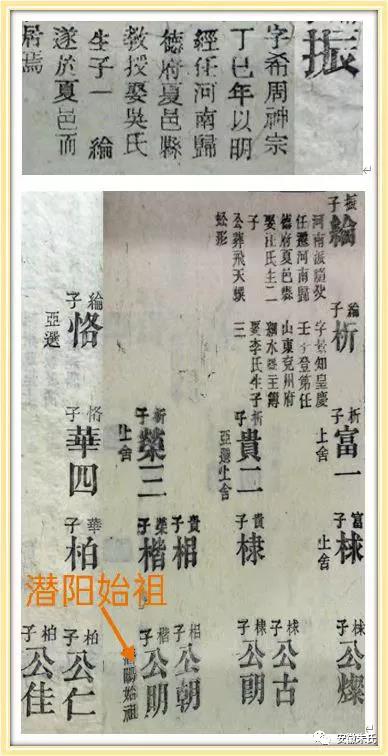 振
字希周神宗
丁巳年以明
經任河南歸
德府夏邑縣
教授娶吳氏
生子一 綸
遂於夏邑而
居焉
振子
綸
任遷河南歸
德府夏邑縣
娶汪氏生二
子
公葬飛天蜈
蚣形
綸子
析
知皇慶
壬子登第任
山東兗州府
泗水縣主簿
娶李氏生子
三
析子
富一
上舍
富子
上舍
子
公燦
棣子
公古
析子
貴二
亞選上舍
貴子
棣
棣子
公朗
貴子
子
公朝
析子
榮三
上舍
榮子
楷
楷子
公明
始祖
潜阳始祖
綸子
恪
亞選
恪子
華四
華子
柏
柏子
公仁
柏子
公佳
安徽朱氏